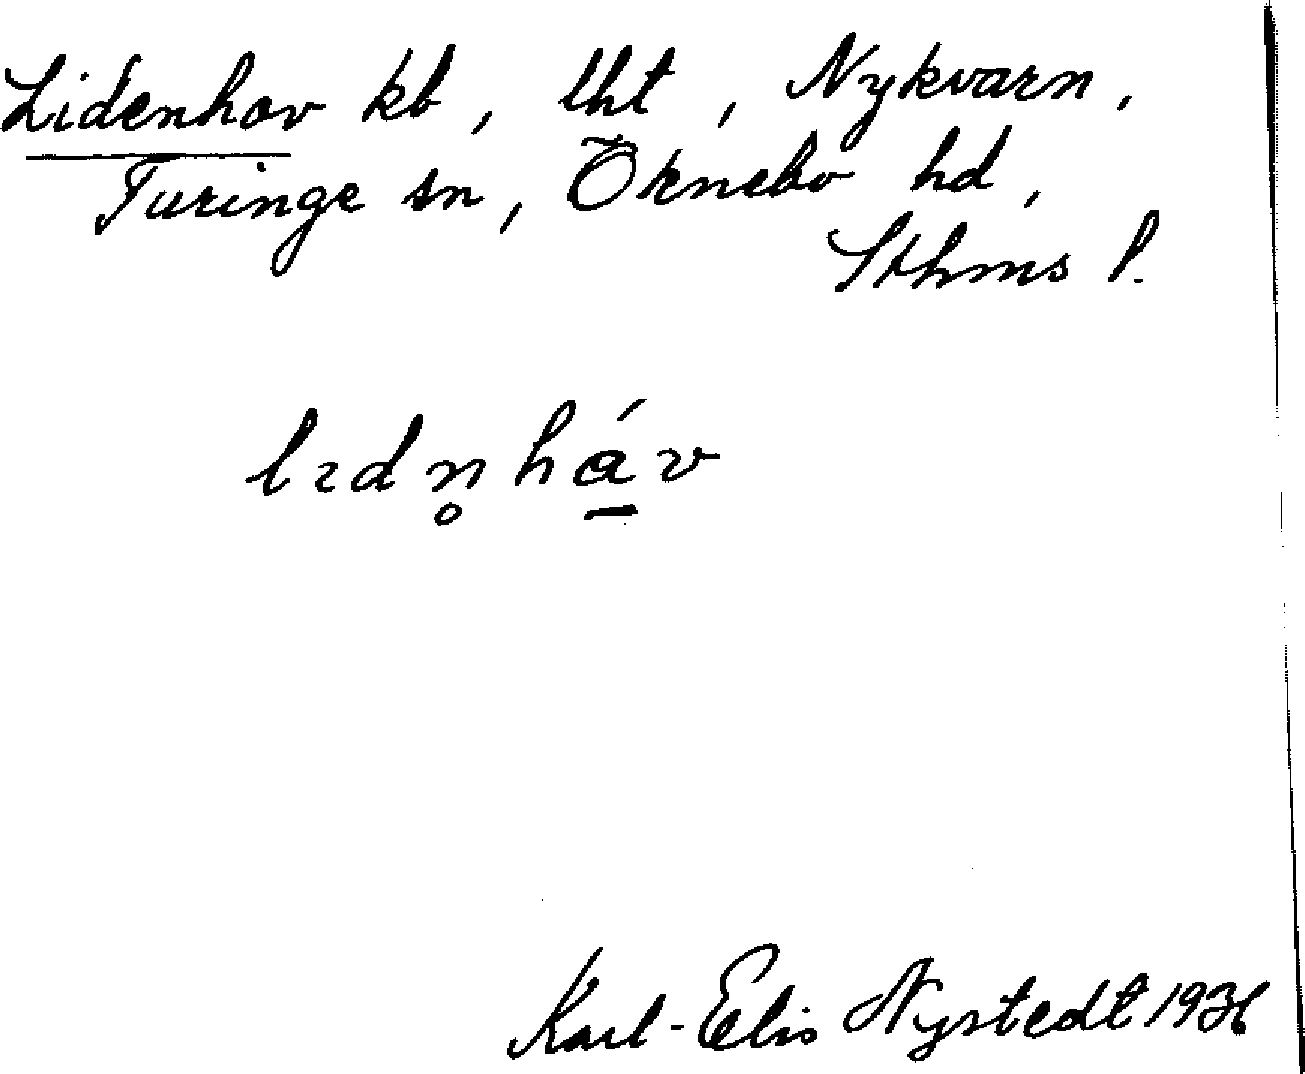 Lidenhov kb, lht, Nykvarn,
Turinge sn, Öknebo hd,
Sthms l.
lɪdn̥há̱v
Karl-Elis Nystedt 1936